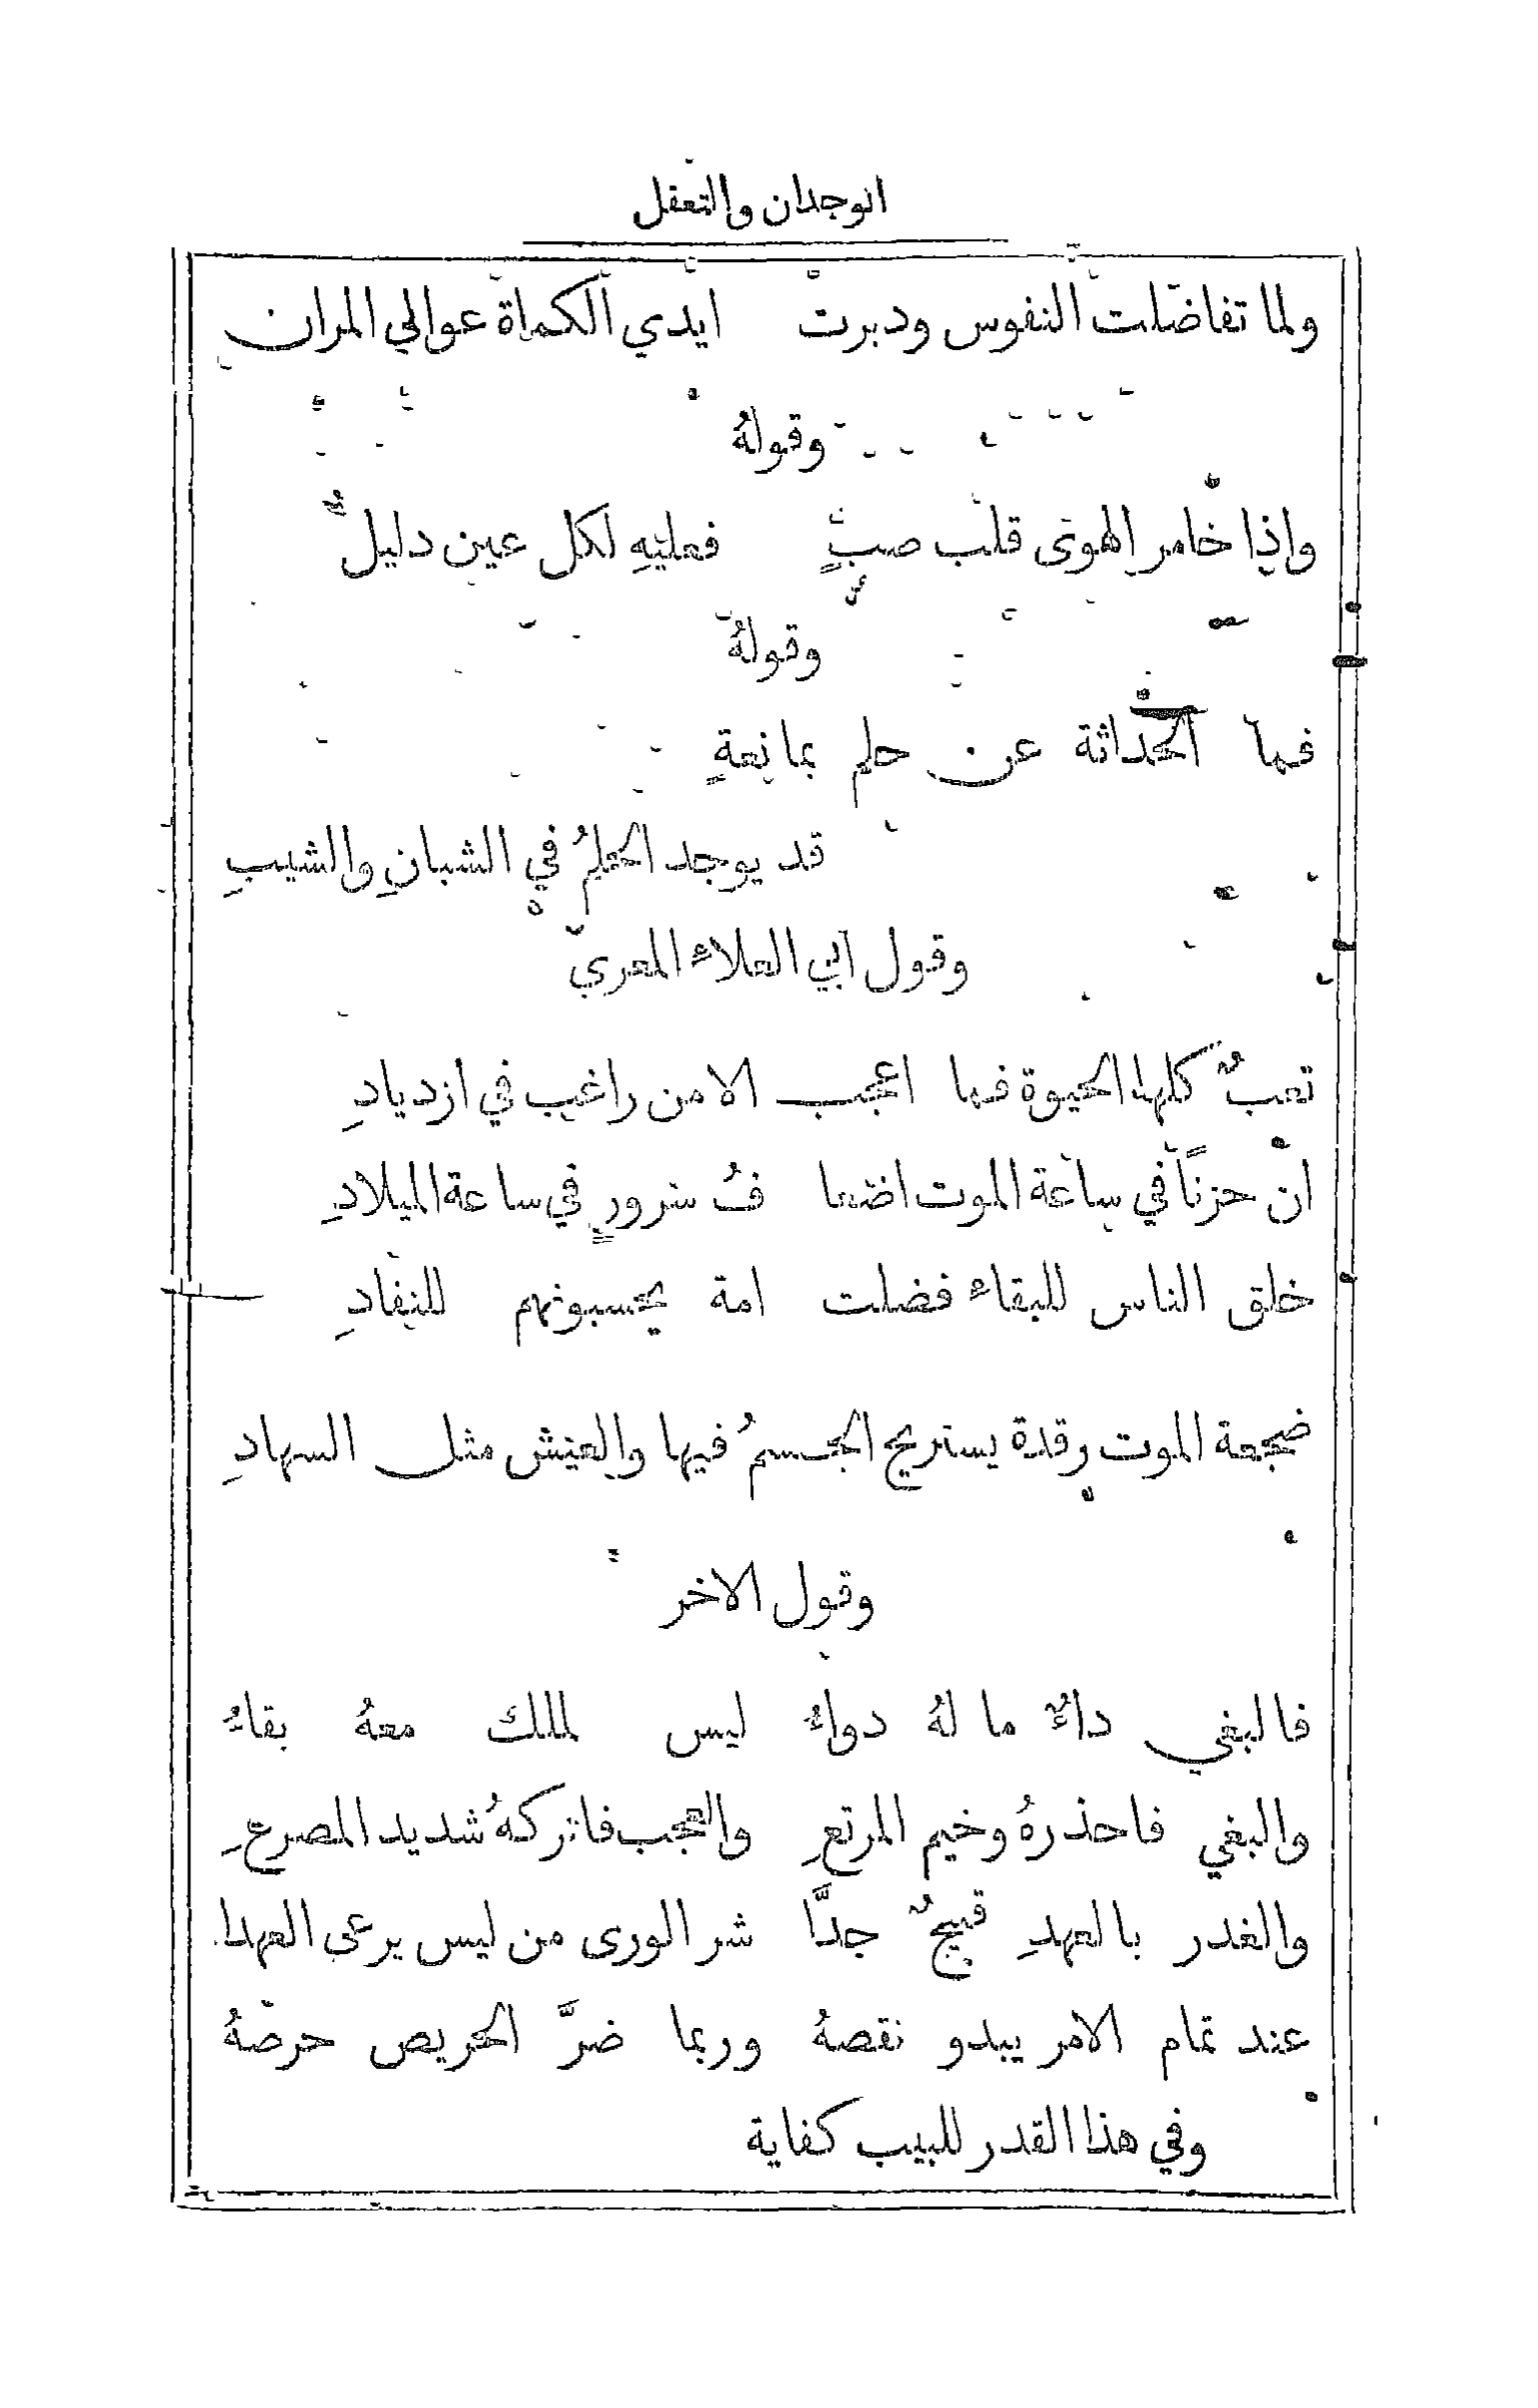 الوجدان والتعقل
ولما تفاضلت النفوس ودبرت ايدي الكماة عوالي المران
وقولهُ
واذا خامر الهوى قلب صبٍّ فعليهِ لكل عين دليلُ
وقولهُ
فما الحداثة عن حلم بمانعةٍ
قد يوجد الحلمُ في الشبانِ والشيبِ
وقول ابي العلاء المعري
تعبٌ كلها الحيوة فما اعجب الا من راغب في ازديادِ
ان حزنًا في ساعة الموت اضعا فُ سرورٍ في ساعة الميلادِ
خلق الناس للبقاء فضلت امة يحسبونهم للنفادِ
ضجعة الموت رقدة يستريح الجسمُ فيها والعيش مثل السهادِ
وقول الاخر
فالبغي داءٌ ما لهُ دواءُ ليس لملك معهُ بقاءُ
والبغي فاحذرهُ وخيم المرتعِ والعجب فاتركهُ شديد المصرعِ
والغدر بالعهدِ قبيحٌ جدَّا شر الورى من ليس يرعى العهدا
عند تمام الامر يبدو نقصهُ وربما ضرَّ الحريص حرصهُ
وفي هذا القدر للبيب كفاية